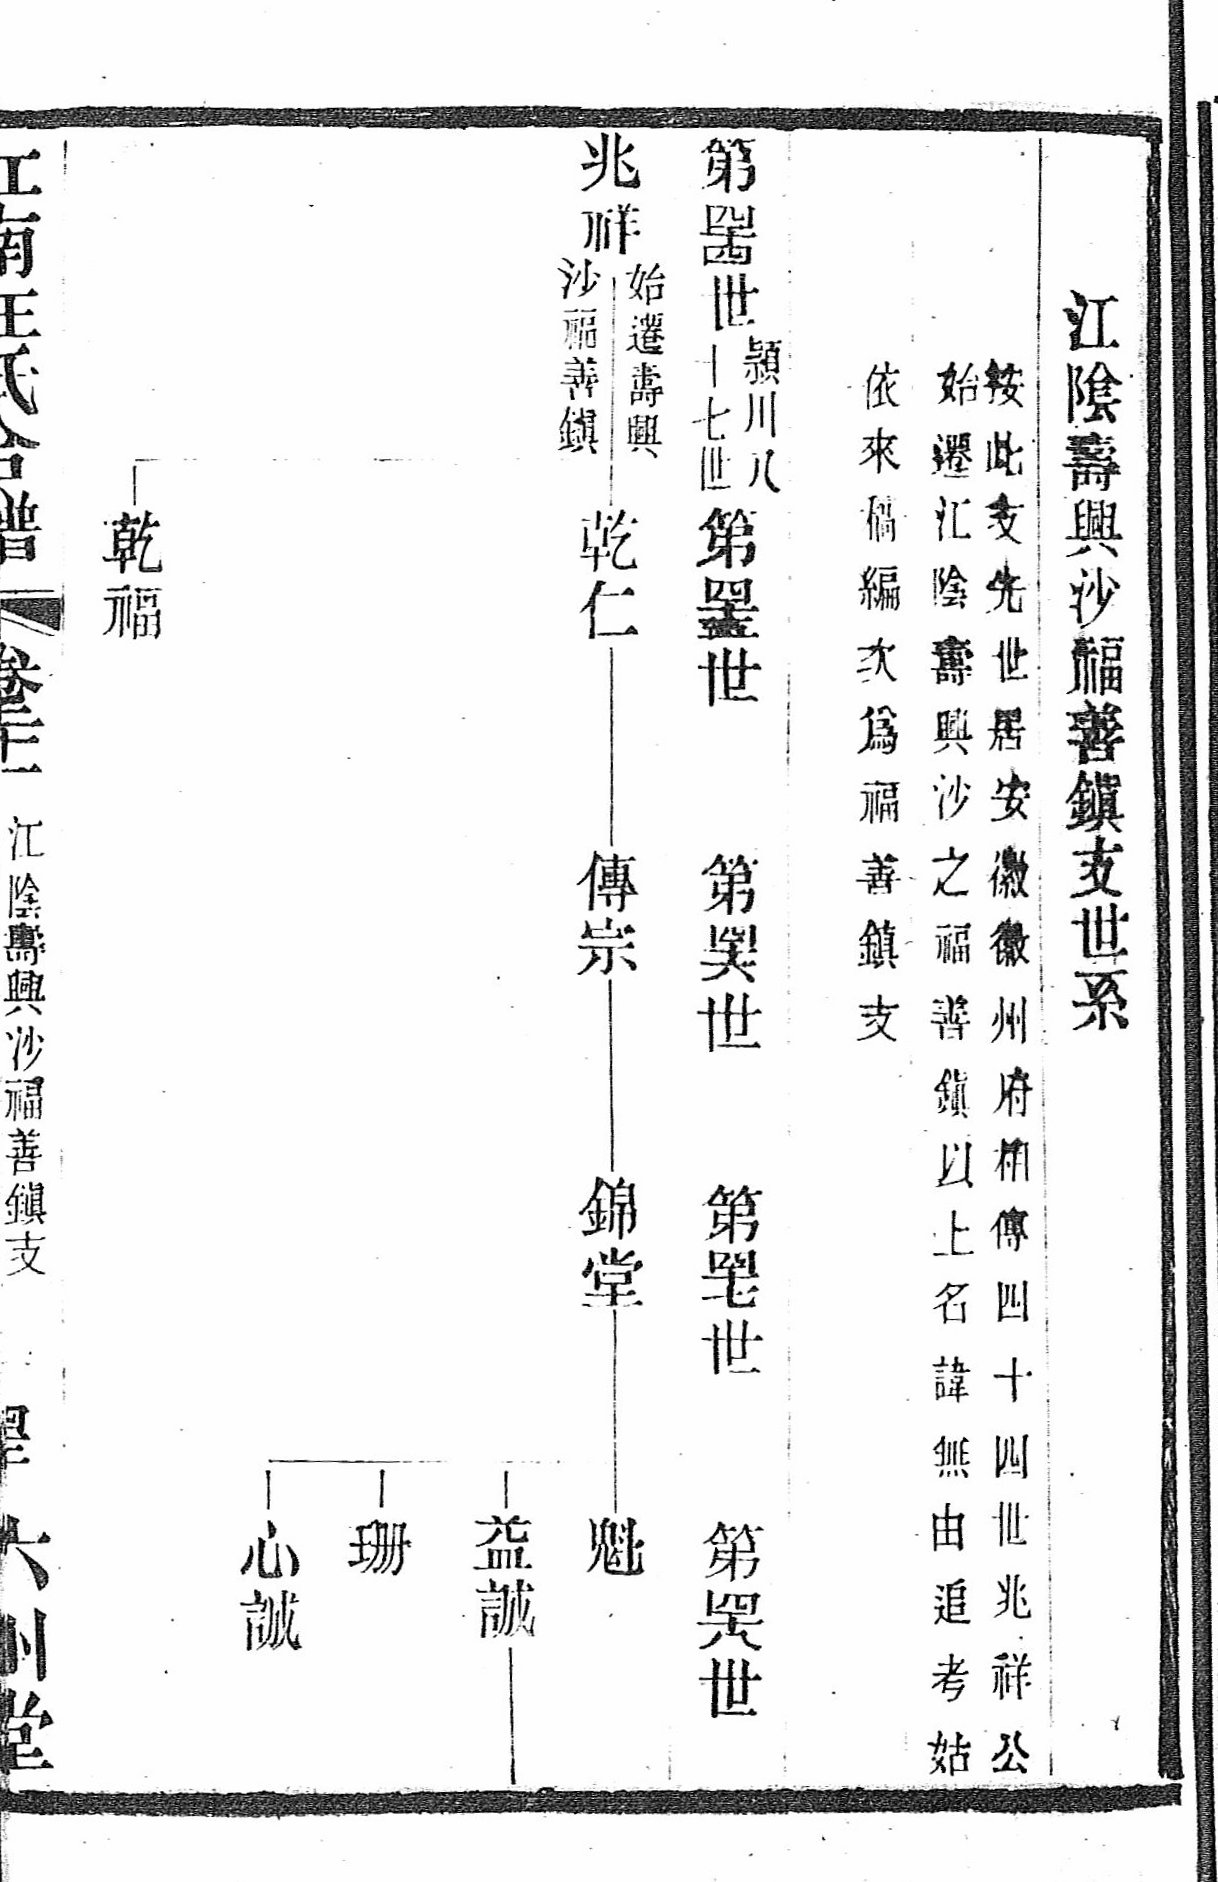 江陰壽興沙福善鎮支世系
按此支先世居安徽徽州府相傳四十四世兆祥公
始遷江陰壽興沙之福善鎮以上名諱無由追考姑
依來稿編次爲福善鎮支
第四十四世
潁川八
十七世
第四十五世
第四十六世
第四十七世
第四十八世
兆祥
始遷壽興
沙福善鎮
乾仁
傳宗
錦堂
魁
益誠
珊
心誠
乾福
江南汪氏合譜
卷
江陰壽興沙福善鎮支
六州堂